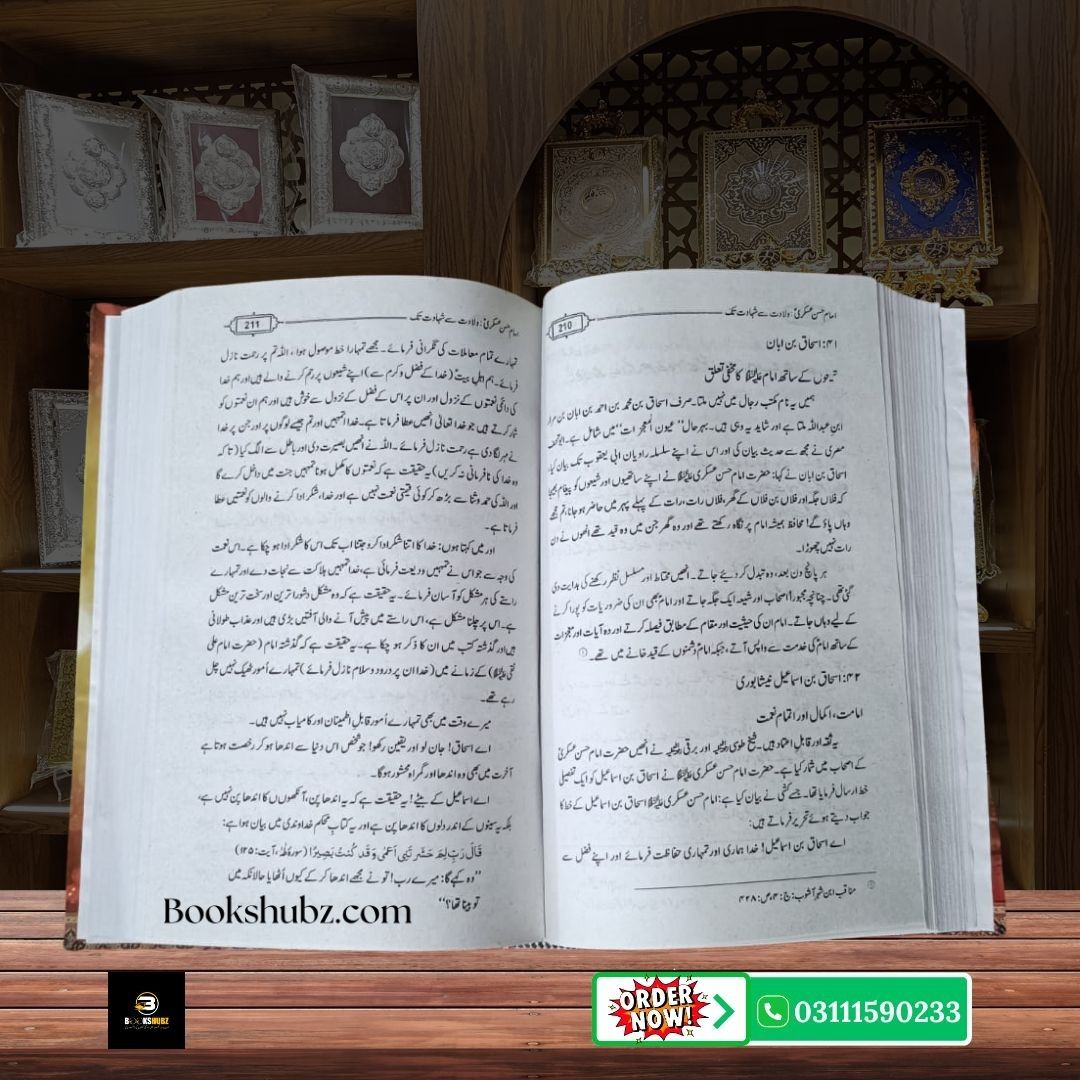 امام حسن عسکریؑ: ولادت سے شہادت تک
210
۴۱: اسحاق بن ابان
کے ساتھ امام علیہ السلام کا مخفی تعلق
ہمیں یہ نام کتب رجال میں نہیں ملتا۔ صرف اسحاق بن محمد بن احمد بن ابان بن مرار
ابن عبداللہ ملتا ہے اور شاید یہ وہی ہیں۔ بہرحال "عیون المعجزات" میں شامل ہے۔
مصری نے مجھ سے حدیث بیان کی اور اس نے اپنے سلسلہ راویان ابی یعقوب تک بیان کیا،
اسحاق بن ابان نے کہا: حضرت امام حسن عسکری علیہ السلام نے اپنے ساتھیوں اور شیعوں کو پیغام بھیجا
کہ فلاں جگہ اور فلاں بن فلاں کے گھر، فلاں رات، رات کے پہلے پہر میں حاضر ہو جانا، تم مجھے
وہاں پاؤ گے! محافظ ہمیشہ امام پر نگاہ رکھتے تھے اور وہ گھر جن میں وہ قید تھے انھوں نے دن
رات نہیں چھوڑا۔
ہر پانچ دن بعد، وہ تبدیل کر دیئے جاتے۔ انھیں محتاط اور مسلسل نظر رکھنے کی ہدایت دی
گئی تھی۔ چنانچہ مجبوراً اصحاب اور شیعہ ایک جگہ جاتے اور امام بھی ان کی ضروریات کو پورا کرنے
کے لیے وہاں جاتے۔ امام ان کی حیثیت اور مقام کے مطابق فیصلہ کرتے اور وہ آیات اور معجزات
کے ساتھ امام کی خدمت سے واپس آتے، جبکہ امام دشمنوں کے قید خانے میں تھے۔ ①
۴۲: اسحاق بن اسماعیل نیشابوری
امامت، اکمال اور اتمام نعمت
یہ ثقہ اور قابل اعتماد ہیں۔ شیخ طوسیؒ اور برقیؒ نے انھیں حضرت امام حسن عسکریؑ
کے اصحاب میں شمار کیا ہے۔ حضرت امام حسن عسکری علیہ السلام نے اسحاق بن اسماعیل کو ایک تفصیلی
خط ارسال فرمایا تھا۔ جسے کشی نے بیان کیا ہے: امام حسن عسکری علیہ السلام اسحاق بن اسماعیل کے خط کا
جواب دیتے ہوئے تحریر فرماتے ہیں:
اے اسحاق بن اسماعیل! خدا ہماری اور تمہاری حفاظت فرمائے اور اپنے فضل سے
① مناقب ابن شہر آشوب: ج: ۴، ص: ۴۲۸
امام حسن عسکریؑ: ولادت سے شہادت تک
211
تمہارے تمام معاملات کی نگرانی فرمائے۔ مجھے تمہارا خط موصول ہوا، اللہ تم پر رحمت نازل
فرمائے۔ ہم اہل بیتؑ (خدا کے فضل و کرم سے) اپنے شیعوں پر رحم کرنے والے ہیں اور ہم خدا
کی دائمی نعمتوں کے نزول اور ان پر اس کے فضل کے نزول سے خوش ہیں اور ہم ان نعمتوں کو
شمار کرتے ہیں جو خدا تعالیٰ انھیں عطا فرماتا ہے۔ خدا تمہیں اور تم جیسے لوگوں پر اور جن پر خدا
نے مہر لگا دی ہے رحمت نازل فرمائے۔ اللہ نے انھیں بصیرت دی اور باطل سے الگ کیا (تاکہ
وہ خدا کی نافرمانی نہ کریں) یہ حقیقت ہے کہ نعمتوں کا مکمل ہونا تمہیں جنت میں داخل کرے گا
اور اللہ کی حمد و ثنا سے بڑھ کر کوئی قیمتی نعمت نہیں ہے اور خدا، شکر ادا کرنے والوں کو نعمتیں عطا
فرماتا ہے۔
اور میں کہتا ہوں: خدا کا اتنا شکر ادا کرو جتنا اب تک اس کا شکر ادا ہو چکا ہے۔ اس نعمت
کی وجہ سے جو اس نے تمہیں ودیعت فرمائی ہے، خدا تمہیں ہلاکت سے نجات دے اور تمہارے
راستے کی ہر مشکل کو آسان فرمائے۔ یہ حقیقت ہے کہ وہ مشکل دشوار ترین اور سخت ترین مشکل
ہے۔ اس پر چلنا مشکل ہے، اس راستے میں پیش آنے والی آفتیں بڑی ہیں اور عذاب طولانی
ہیں اور گذشتہ کتب میں ان کا ذکر ہو چکا ہے۔ یہ حقیقت ہے کہ گذشتہ امام (حضرت امام علی
نقی علیہ السلام) کے زمانے میں (خدا ان پر درود و سلام نازل فرمائے) تمہارے اُمور ٹھیک نہیں چل
رہے تھے۔
میرے وقت میں بھی تمہارے اُمور قابل اطمینان اور کامیاب نہیں ہیں۔
اے اسحاق! جان لو اور یقین رکھو! جو شخص اس دنیا سے اندھا ہو کر رخصت ہوتا ہے
آخرت میں بھی وہ اندھا اور گمراہ محشور ہوگا۔
اے اسماعیل کے بیٹے! یہ حقیقت ہے کہ یہ اندھا پن، آنکھوں کا اندھا پن نہیں ہے،
بلکہ یہ سینوں کے اندر دلوں کا اندھا پن ہے اور یہ کتاب محکم خداوندی میں بیان ہوا ہے:
قَالَ رَبِّ لِمَ حَشَرْتَنِي أَعْمَىٰ وَقَدْ كُنْتُ بَصِيرًا (سورہ طٰہٰ، آیت: ۱۲۵)
"وہ کہے گا: میرے رب! تو نے مجھے اندھا کر کے کیوں اُٹھایا حالانکہ میں
تو بینا تھا؟"
Bookshubz.com
BOOKSHUBZ
ORDER NOW!
03111590233